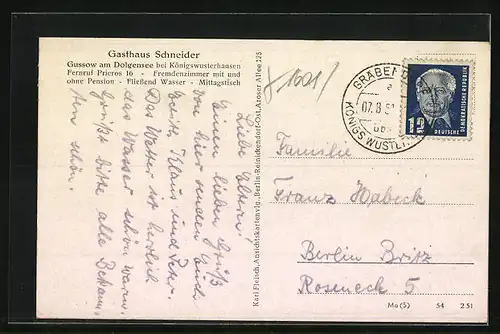 Gasthaus Schneider
Gussow am Dolgensee bei Königswusterhausen
Fernruf Prieros 16 - Fremdenzimmer mit und
ohne Pension - Fließend Wasser - Mittagstisch
Liebe Eltern!
Einen lieben Gruß
von hier senden Euch
Klaus und
Das Wetter ist herrlich
das Wasser schön warm.
Grüßt bitte alle Bekann-
ten schön.
Karl Fleisch, Ansichtskartenvlg., Berlin-Reinickendorf-Ost, Aroser Allee 125
1601/
GRABEN
a
07.8.5
KÖNIGS WUSTER
DEUTSCHE
DEMOKRATISCHE REPUBLIK
12
Familie
Franz Habeck
Berlin Britz
Roseneck 5
Ma (5) 54 2 51